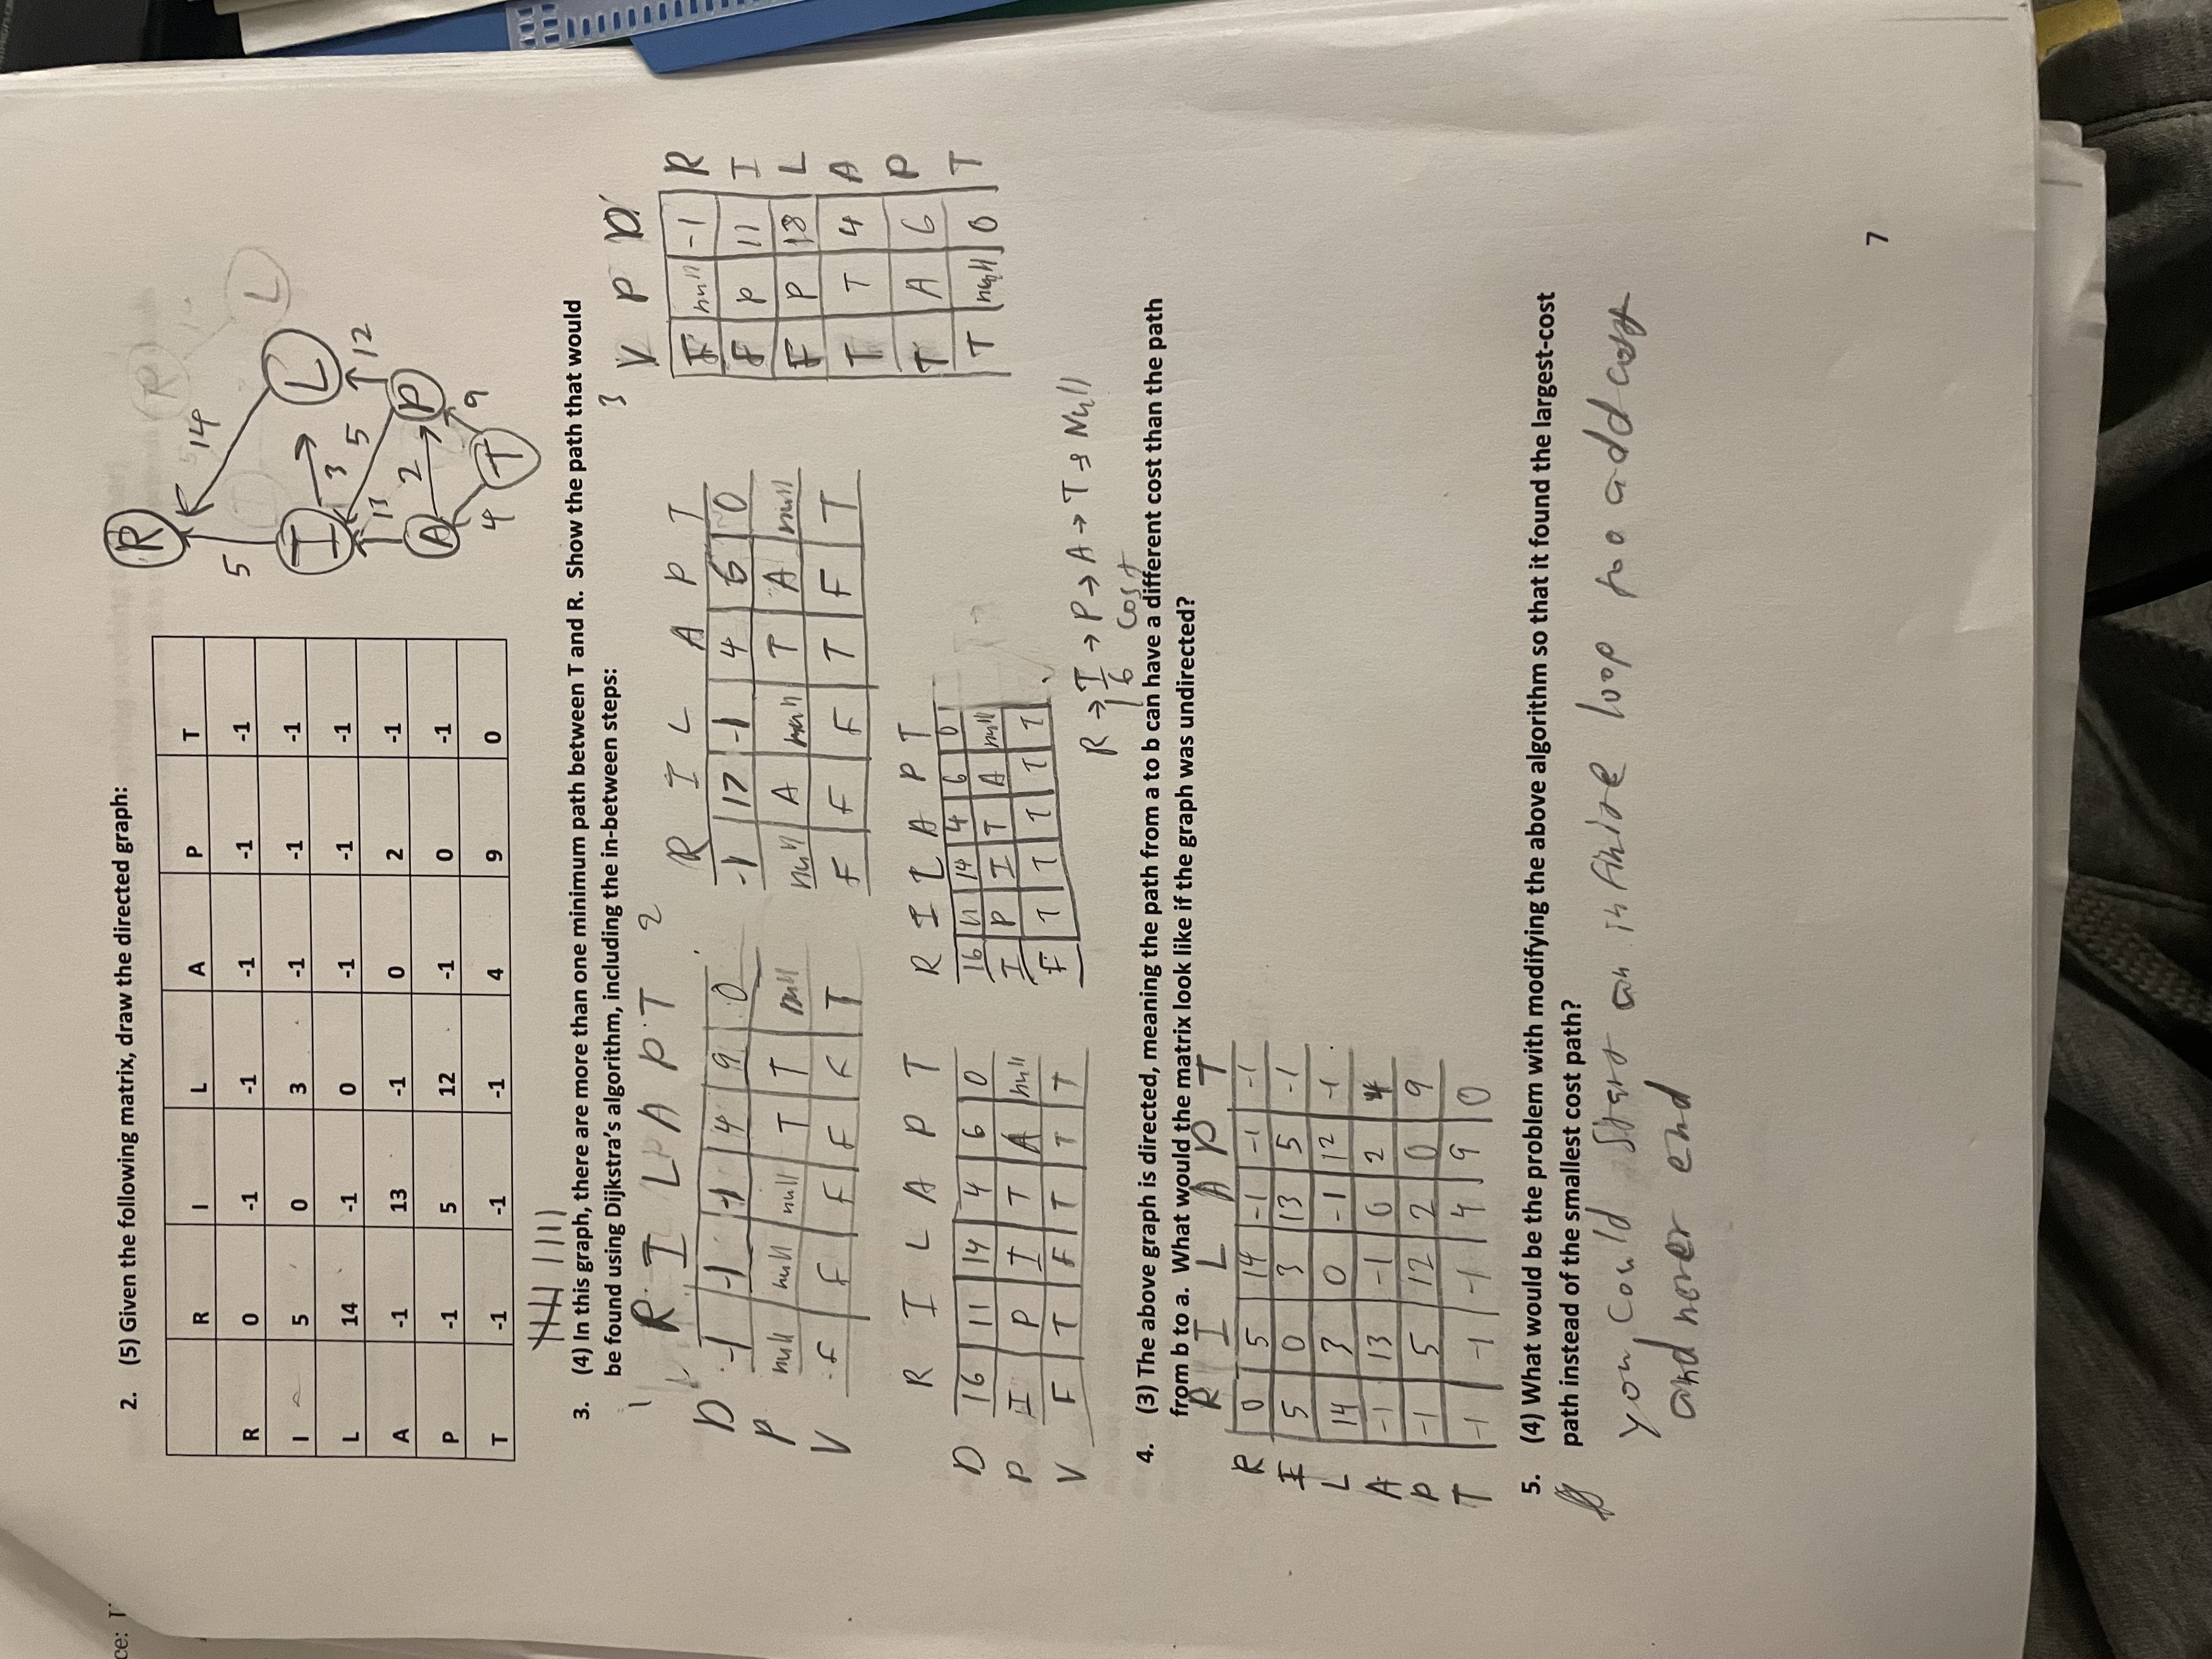 ce:
2. (5) Given the following matrix, draw the directed graph:
R I L A P T
R 0 -1 -1 -1 -1 -1
I 5 0 3 -1 -1 -1
L 14 -1 0 -1 -1 -1
A -1 13 -1 0 2 -1
P -1 5 12 -1 0 -1
T -1 -1 -1 4 9 0
R
14
5
I
L
3
5
12
13
A
2
P
4
9
T
R
L
3. (4) In this graph, there are more than one minimum path between T and R. Show the path that would
be found using Dijkstra's algorithm, including the in-between steps:
1
R I L A P T
D -1 -1 -1 4 9 0
P null null null T T null
V F F F F F T
2
R I L A P T
-1 17 -1 4 6 0
null A null T A null
F F F T F T
3
V P D
F null -1 R
F P 11 I
F P 18 L
T T 4 A
T A 6 P
T null 0 T
R I L A P T
D 16 11 14 4 6 0
P I P I T A null
V F T F T T T
R I L A P T
16 11 14 4 6 0
I P I T A null
F T T T T T
R → I → P → A → T → Null
16 cost
4. (3) The above graph is directed, meaning the path from a to b can have a different cost than the path
from b to a. What would the matrix look like if the graph was undirected?
R I L A P T
R 0 5 14 -1 -1 -1
I 5 0 3 13 5 -1
L 14 3 0 -1 12 -1
A -1 13 -1 0 2 4
P -1 5 12 2 0 9
T -1 -1 -1 4 9 0
5. (4) What would be the problem with modifying the above algorithm so that it found the largest-cost
path instead of the smallest cost path?
you could start an infinite loop too add cost
and never end
7